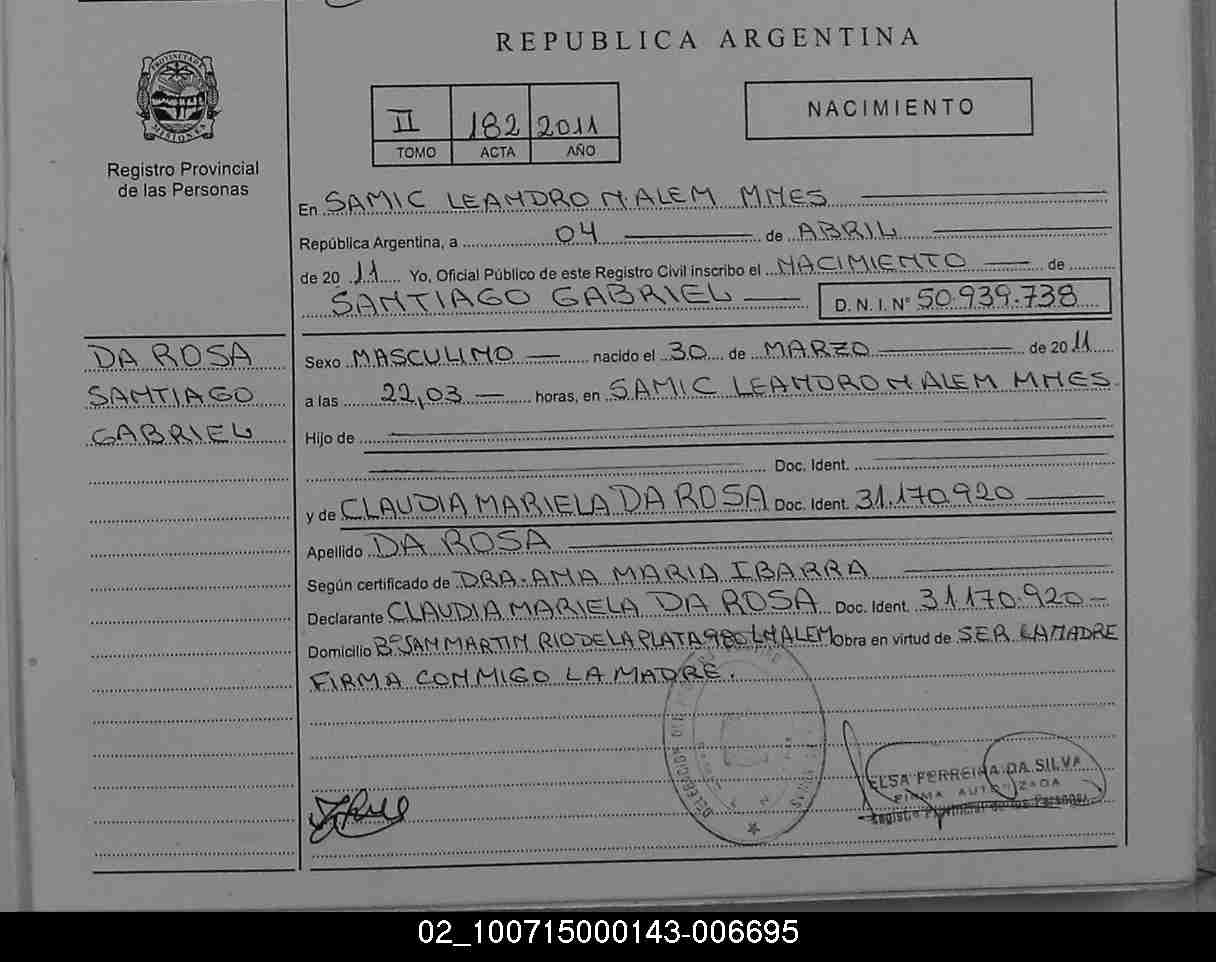 REPUBLICA ARGENTINA
PROVINCIA DE MISIONES
Registro Provincial
de las Personas
II 182 2011
TOMO ACTA AÑO
NACIMIENTO
En SAMIC LEANDRO N. ALEM MNES
República Argentina, a 04 de ABRIL
de 20 11 Yo, Oficial Público de este Registro Civil inscribo el NACIMIENTO de
SANTIAGO GABRIEL D. N. I. Nº 50.939.738
DA ROSA
SANTIAGO
GABRIEL
Sexo MASCULINO nacido el 30 de MARZO de 20 11
a las 22,03 horas, en SAMIC LEANDRO N ALEM MNES
Hijo de
Doc. Ident.
y de CLAUDIA MARIELA DA ROSA Doc. Ident. 31.170.920
Apellido DA ROSA
Según certificado de DRA. ANA MARIA IBARRA
Declarante CLAUDIA MARIELA DA ROSA Doc. Ident. 31.170.920
Domicilio Bº SAN MARTIN RIO DE LA PLATA 980 LN ALEM Obra en virtud de S.E.R. LA MADRE
FIRMA CONMIGO LA MADRE.
ELSA FERREIRA DA SILVA
FIRMA AUTORIZADA
Registro Provincial de las Personas
02_100715000143-006695